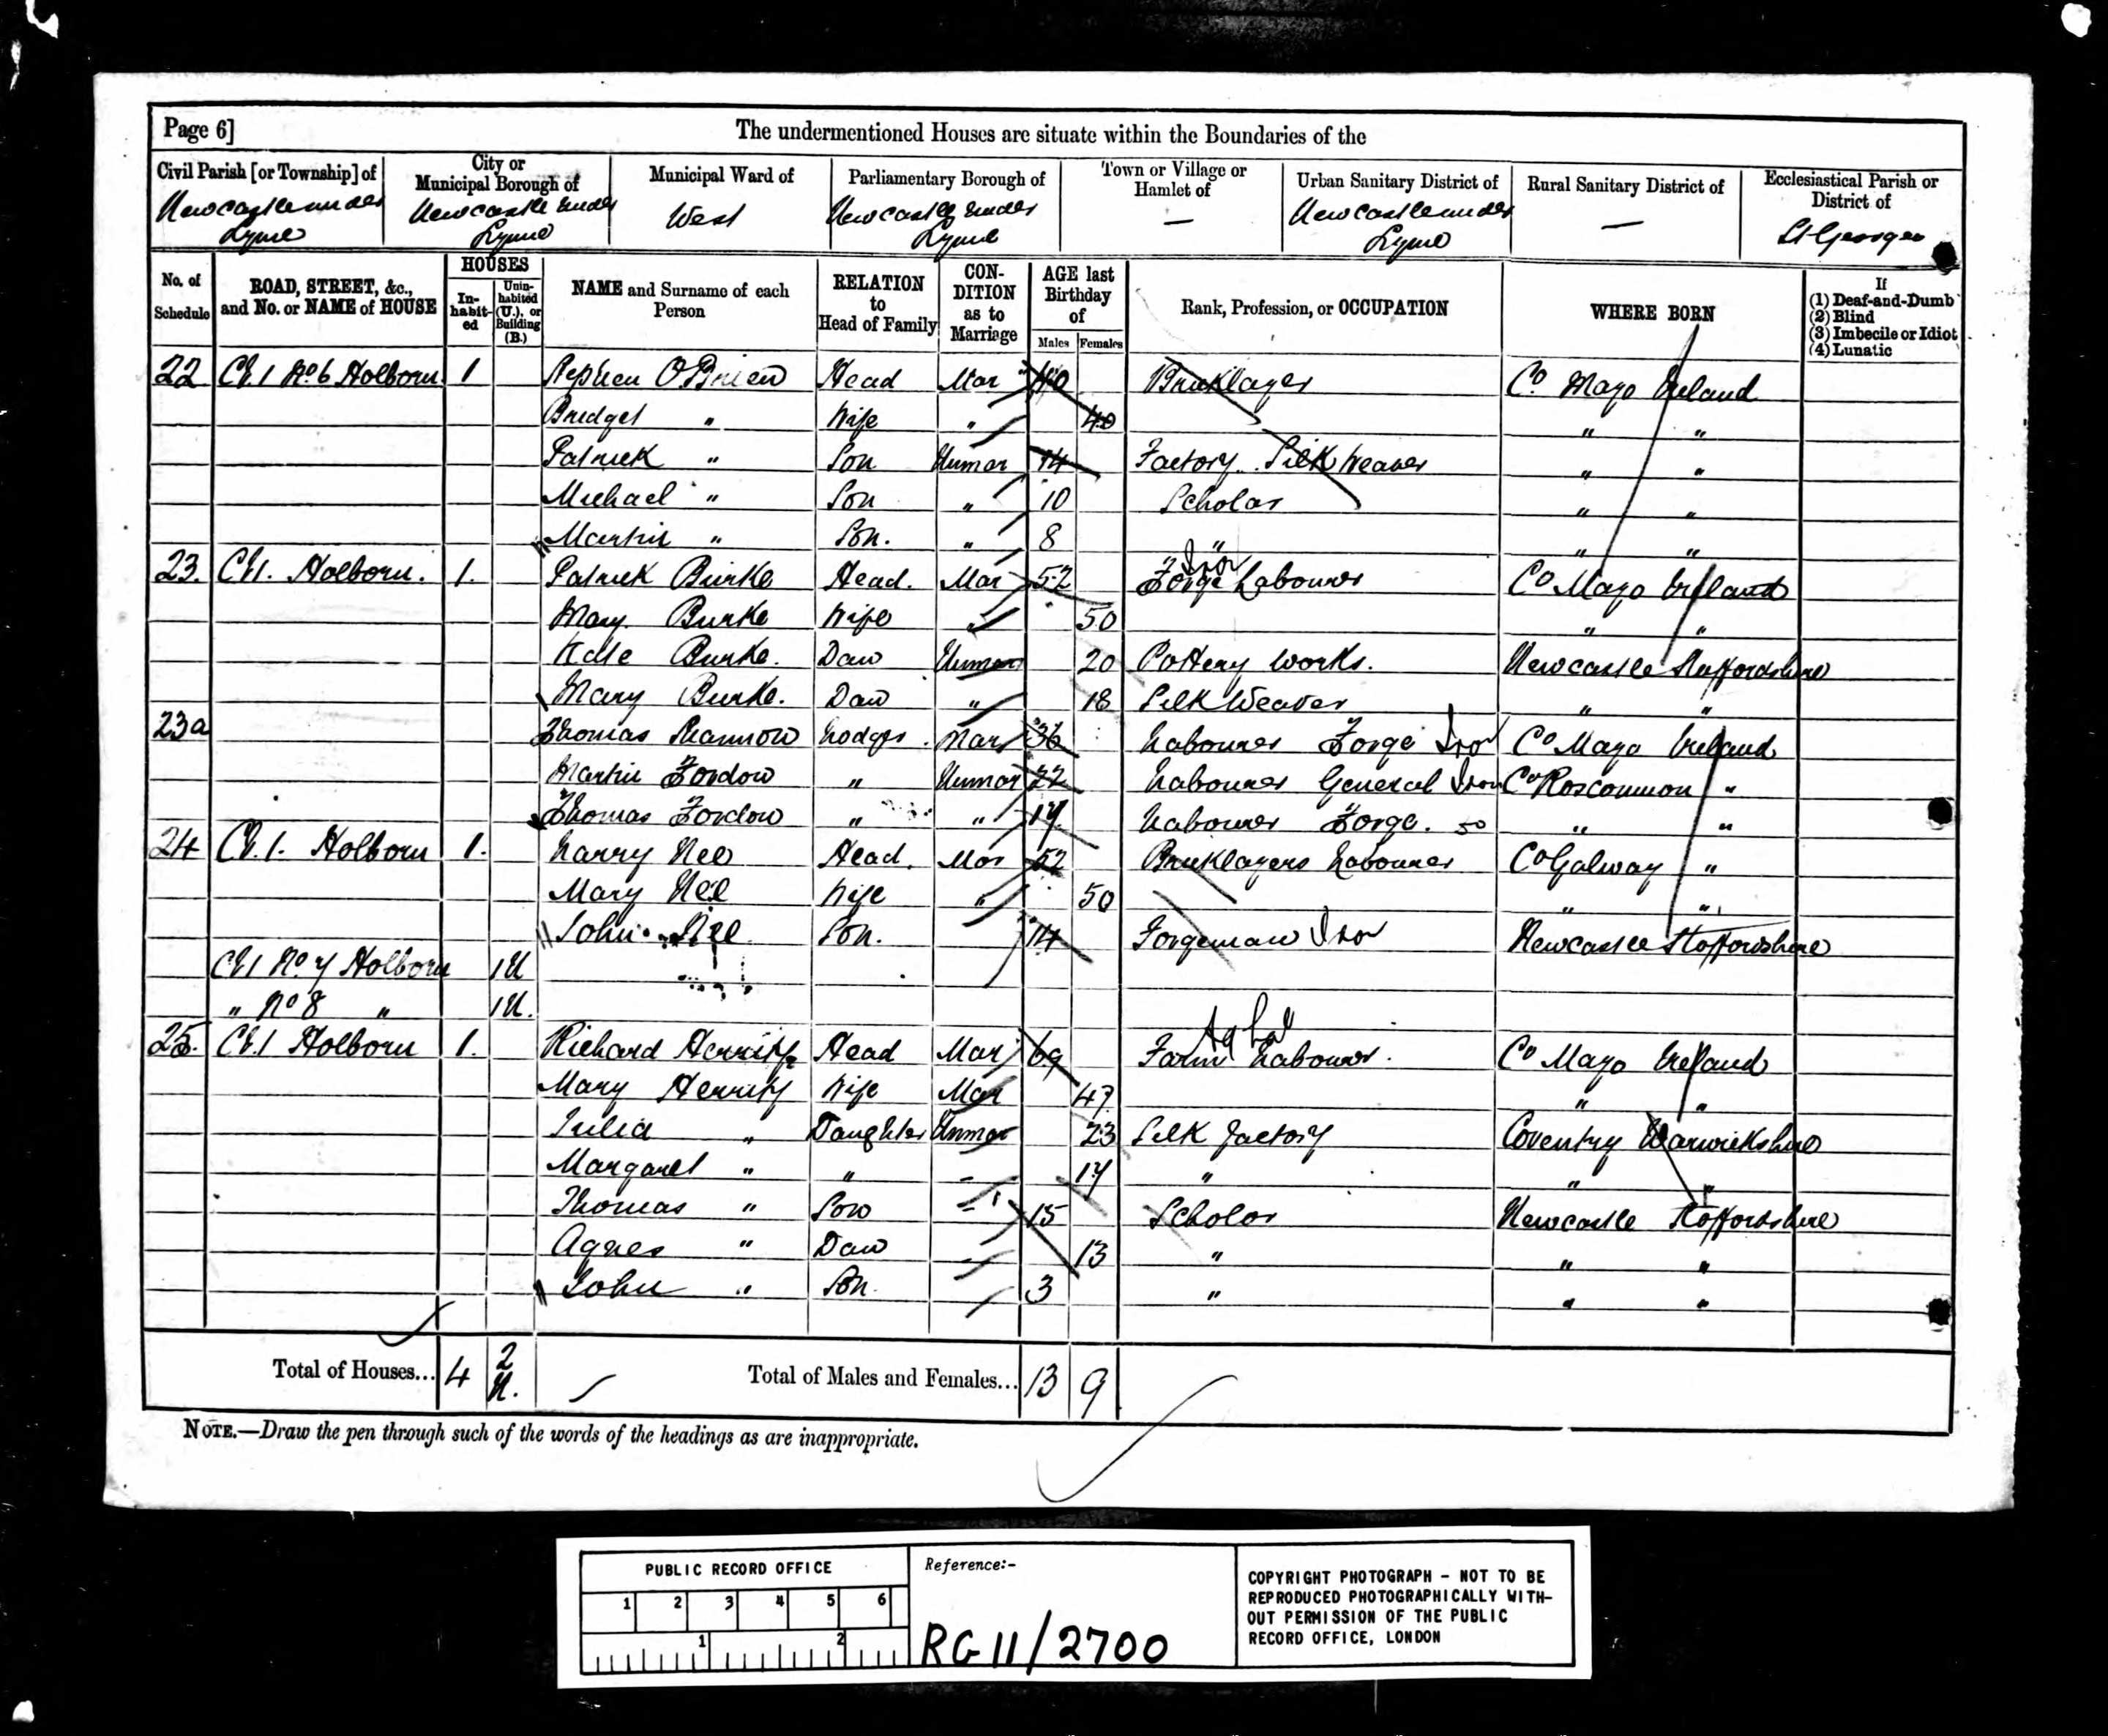 Page 6]
The undermentioned Houses are situate within the Boundaries of the
Civil Parish [or Township] of
Newcastle under
Lyme
City or
Municipal Borough of
Newcastle under
Lyme
Municipal Ward of
West
Parliamentary Borough of
Newcastle under
Lyme
Town or Village or
Hamlet of
—
Urban Sanitary District of
Newcastle under
Lyme
Rural Sanitary District of
—
Ecclesiastical Parish or
District of
St Georges
No. of
Schedule
ROAD, STREET, &c.,
and No. or NAME of HOUSE
HOUSES
In-
habit-
ed
Unin-
habited
(U.), or
Building
(B.)
NAME and Surname of each
Person
RELATION
to
Head of Family
CON-
DITION
as to
Marriage
AGE last
Birthday
of
Males Females
Rank, Profession, or OCCUPATION
WHERE BORN
If
(1) Deaf-and-Dumb
(2) Blind
(3) Imbecile or Idiot
(4) Lunatic
22 Ct 1 No 6 Holborn 1 Stephen O'Brien Head Mar 40 Bricklayer Co Mayo Ireland
Bridget " Wife " 40 " "
Patrick " Son Unmar 14 Factory Silk Weaver " "
Michael " Son " 10 Scholar " "
Martin " Son. " 8 " " "
23. Ct 1. Holborn. 1. Patrick Burke Head. Mar 52 Iron Forge Labourer Co Mayo Ireland
Mary Burke Wife " 50 " "
Kate Burke. Daw Unmar 20 Pottery Works. Newcastle Staffordshire
Mary Burke. Daw " 18 Silk Weaver " "
23a Thomas Lodger Mar 36 Labourer Forge Iron Co Mayo Ireland
Martin Fordow " Unmar 22 Labourer General Iron Co Roscommon "
Thomas Fordow " " 19 Labourer Forge. " "
24 Ct. 1. Holborn 1. Larry Nee Head. Mar 52 Bricklayers Labourer Co Galway "
Mary Nee Wife " 50 " "
John Nee Son. Forgeman Iron Newcastle Staffordshire
Ct 1 No 7 Holborn 1U
" No 8 " 1U.
25. Ct. 1 Holborn 1. Richard Head Mar 69 Ag Lab Farm Labourer. Co Mayo Ireland
Mary Wife Mar 47 " "
Julia " Daughter Unmar 23 Silk factory Coventry Warwickshire
Margaret " " " 17 " " "
Thomas " Son " 15 Scholar Newcastle Staffordshire
Agnes " Daw 13 " " "
John " Son 3 " " "
Total of Houses... 4 2 U.
Total of Males and Females... 13 9
NOTE.—Draw the pen through such of the words of the headings as are inappropriate.
PUBLIC RECORD OFFICE
1 2 3 4 5 6
1 2
Reference:-
RG 11/2700
COPYRIGHT PHOTOGRAPH - NOT TO BE
REPRODUCED PHOTOGRAPHICALLY WITH-
OUT PERMISSION OF THE PUBLIC
RECORD OFFICE, LONDON